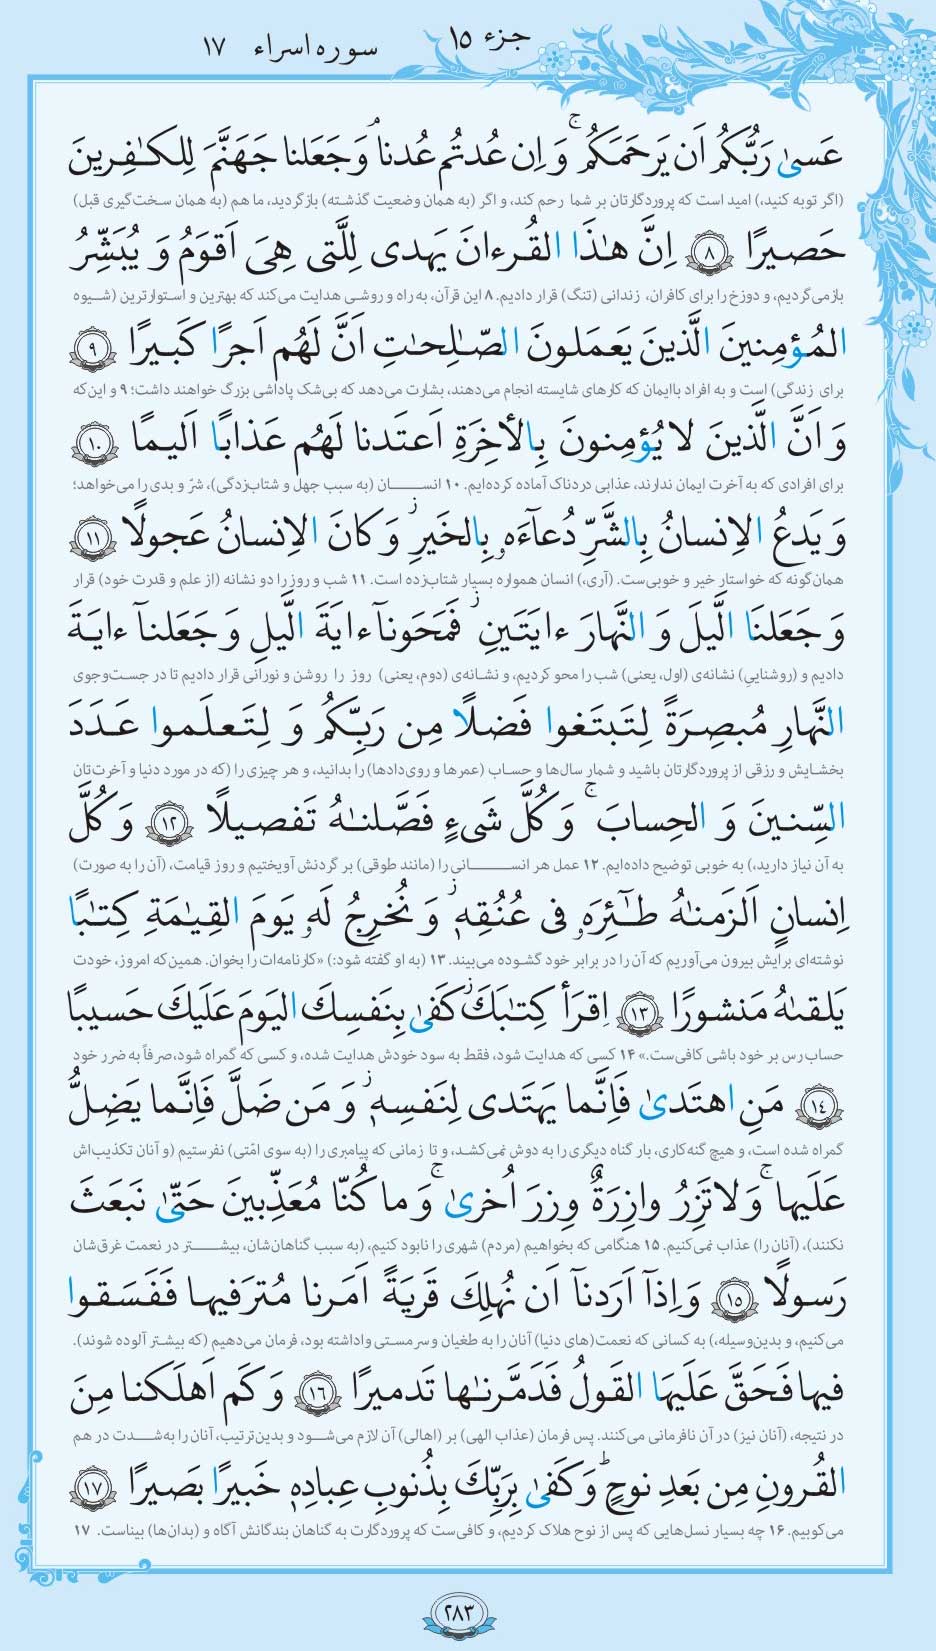 جزء ۱۵
سوره اسراء ۱۷
عَسىٰ رَبُّكُم اَن يَرحَمَكُم ۚ وَ اِن عُدتُم عُدنا ۘ وَ جَعَلنا جَهَنَّمَ لِلكـٰفِرينَ
(اگر توبه کنید،) امید است که پروردگارتان بر شما رحم کند، و اگر (به همان وضعیت گذشته) بازگردید، ما هم (به همان سخت‌گیری قبل)
حَصيرًا ﴿٨﴾ اِنَّ هـٰذَا القُرءانَ يَهدى لِلَّتى هِىَ اَقوَمُ وَ يُبَشِّرُ
بازمی‌گردیم، و دوزخ را برای کافران، زندانی (تنگ) قرار دادیم. ۸ این قرآن، به راه و روشی هدایت می‌کند که بهترین و استوارترین (شیوه
المُؤمِنينَ الَّذينَ يَعمَلونَ الصّـٰلِحـٰتِ اَنَّ لَهُم اَجرًا كَبيرًا ﴿٩﴾
برای زندگی) است و به افراد باایمان که کارهای شایسته انجام می‌دهند، بشارت می‌دهد که بی‌شک پاداشی بزرگ خواهند داشت؛ ۹ و این‌که
وَ اَنَّ الَّذينَ لا يُؤمِنونَ بِالأخِرَةِ اَعتَدنا لَهُم عَذابًا اَليمًا ﴿١٠﴾
برای افرادی که به آخرت ایمان ندارند، عذابی دردناک آماده کرده‌ایم. ۱۰ انسـان (به سبب جهل و شتاب‌زدگی)، شرّ و بدی را می‌خواهد؛
وَ يَدعُ الاِنسانُ بِالشَّرِّ دُعاۤءَهۥ بِالخَيرِ ۖ وَ كانَ الاِنسانُ عَجولًا ﴿١١﴾
همان‌گونه که خواستار خیر و خوبی‌ست. (آری،) انسان همواره بسیار شتاب‌زده است. ۱۱ شب و روز را دو نشانه (از علم و قدرت خود) قرار
وَ جَعَلنَا الَّيلَ وَ النَّهارَ ءايَتَينِ ۖ فَمَحَوناۤ ءايَةَ الَّيلِ وَ جَعَلناۤ ءايَةَ
دادیم و (روشنایی) نشانه‌ی (اول، یعنی) شب را محو کردیم، و نشانه‌ی (دوم، یعنی) روز را روشن و نورانی قرار دادیم تا در جست‌وجوی
النَّهارِ مُبصِرَةً لِتَبتَغوا فَضلًا مِن رَبِّكُم وَ لِتَعلَموا عَدَدَ
بخشایش و رزقی از پروردگارتان باشید و شمار سال‌ها و حساب (عمرها و روی‌دادها) را بدانید، و هر چیزی را (که در مورد دنیا و آخرت‌تان
السِّنينَ وَ الحِسابَ ۚ وَ كُلَّ شَىءٍ فَصَّلنـٰهُ تَفصيلًا ﴿١٢﴾ وَ كُلَّ
به آن نیاز دارید،) به خوبی توضیح داده‌ایم. ۱۲ عمل هر انسـانی را (مانند طوقی) بر گردنش آویختیم و روز قیامت، (آن را به صورت)
اِنسانٍ اَلزَمنـٰهُ طـٰۤئِرَهۥ فى عُنُقِهۦ ۖ وَ نُخرِجُ لَهۥ يَومَ القِيـٰمَةِ كِتـٰبًا
نوشته‌ای برایش بیرون می‌آوریم که آن را در برابر خود گشوده می‌بیند. ۱۳ (به او گفته شود:) «کارنامه‌ات را بخوان. همین‌که امروز، خودت
يَلقىٰهُ مَنشورًا ﴿١٣﴾ اِقرَأ كِتـٰبَكَ ۖ كَفىٰ بِنَفسِكَ اليَومَ عَلَيكَ حَسيبًا
حساب‌رس بر خود باشی کافی‌ست.» ۱۴ کسی که هدایت شود، فقط به سود خودش هدایت شده، و کسی که گمراه شود، صرفاً به ضرر خود
﴿١٤﴾ مَنِ اهتَدىٰ فَاِنَّما يَهتَدى لِنَفسِهۦ ۖ وَ مَن ضَلَّ فَاِنَّما يَضِلُّ
گمراه شده است، و هیچ گنه‌کاری، بار گناه دیگری را به دوش نمی‌کشد، و تا زمانی که پیامبری را (به سوی امّتی) نفرستیم (و آنان تکذیب‌اش
عَلَيها ۚ وَ لا تَزِرُ وازِرَةٌ وِزرَ اُخرىٰ ۚ وَ ما كُنّا مُعَذِّبينَ حَتّىٰ نَبعَثَ
نکنند)، (آنان را) عذاب نمی‌کنیم. ۱۵ هنگامی که بخواهیم (مردم) شهری را نابود کنیم، (به سبب گناهان‌شان، بیشتر در نعمت غرق‌شان
رَسولًا ﴿١٥﴾ وَ اِذاۤ اَرَدناۤ اَن نُهلِكَ قَريَةً اَمَرنا مُترَفيها فَفَسَقوا
می‌کنیم، و بدین‌وسیله،) به کسانی که نعمت(های دنیا) آنان را به طغیان و سرمستی واداشته بود، فرمان می‌دهیم (که بیشتر آلوده شوند).
فيها فَحَقَّ عَلَيهَا القَولُ فَدَمَّرنـٰها تَدميرًا ﴿١٦﴾ وَ كَم اَهلَكنا مِنَ
در نتیجه، (آنان نیز) در آن نافرمانی می‌کنند. پس فرمان (عذاب الهی) بر (اهالی) آن لازم می‌شود و بدین‌ترتیب، آنان را به‌شدت در هم
القُرونِ مِن بَعدِ نوحٍ ۗ وَ كَفىٰ بِرَبِّكَ بِذُنوبِ عِبادِهۦ خَبيرًا بَصيرًا ﴿١٧﴾
می‌کوبیم. ۱۶ چه بسیار نسل‌هایی که پس از نوح هلاک کردیم، و کافی‌ست که پروردگارت به گناهان بندگانش آگاه و (بدان‌ها) بیناست. ۱۷
۲۸۳